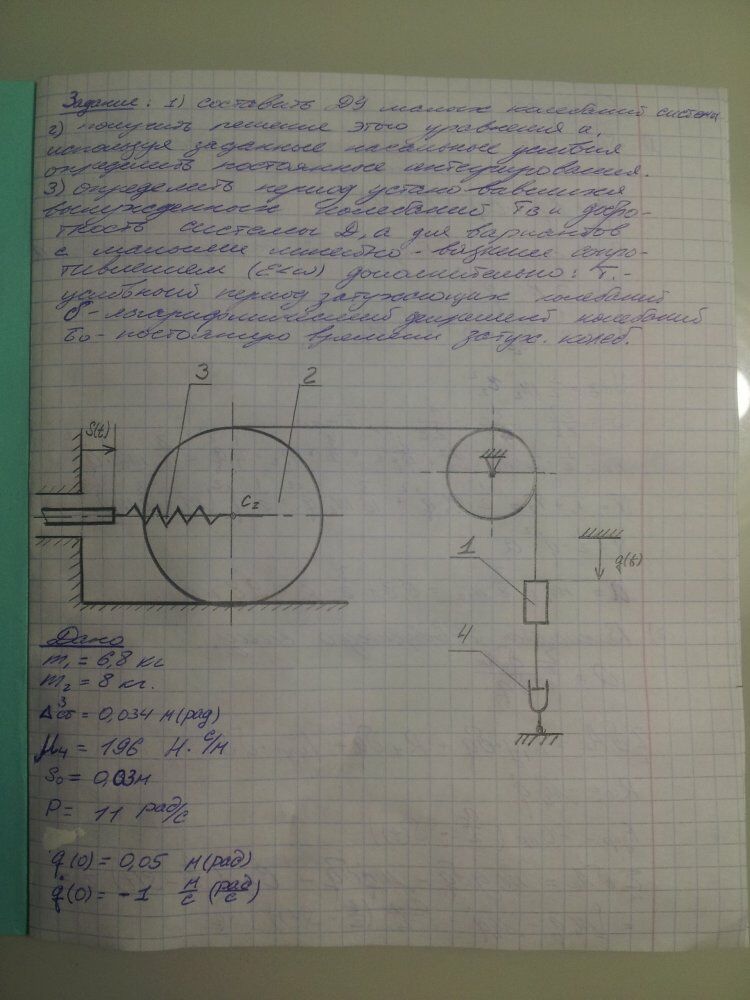 Задание: 1) составить ДУ малых колебаний системы
2) получить решение этого уравнения и,
используя заданные начальные условия
определить постоянные интегрирования.
3) определить период установившихся
вынужденных колебаний Tв и добро-
тность системы Д, а для вариантов
с малыми линейно-вязким сопро-
тивлением (ε<ω) дополнительно: T₁ -
условный период затухающих колебаний
σ - логарифмический декремент колебаний
τ₀ - постоянную времени затух. колеб.
3
2
S(t)
C₂
1
q(t)
4
Дано
m₁ = 6,8 кг
m₂ = 8 кг.
Δ³ст = 0,034 м(рад)
μ₄ = 196 Н·с/м
S₀ = 0,03м
P = 11 рад/с
q(0) = 0,05 м(рад)
q̇(0) = -1 м/с (рад/с)